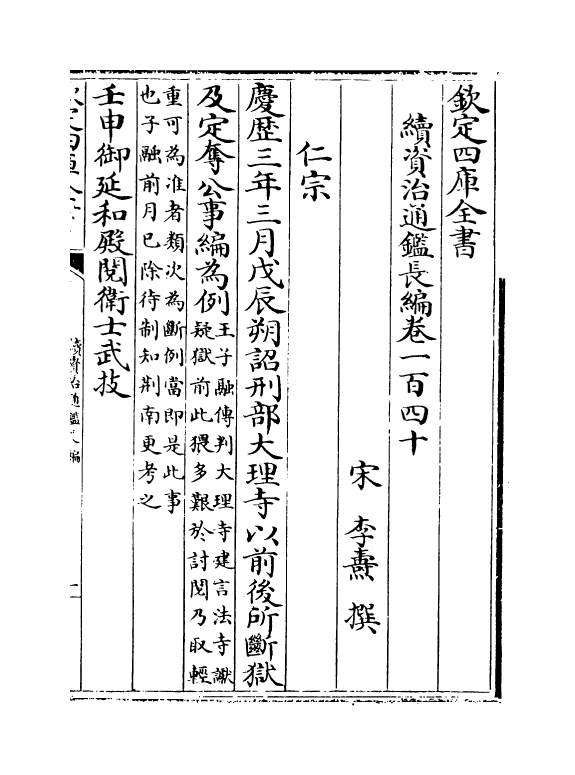 欽定四庫全書
續資治通鑑長編卷一百四十
宋 李燾 撰
仁宗
慶歷三年三月戊辰朔詔刑部大理寺以前後所斷獄
及定奪公事編為例王子融傳判大理寺建言法寺讞
疑獄前此猥多艱於討閱乃取輕
重可為准者類次為斷例當即是此事
也子融前月已除待制知荆南更考之
壬申御延和殿閱衛士武技
續資治通鑑長編
一